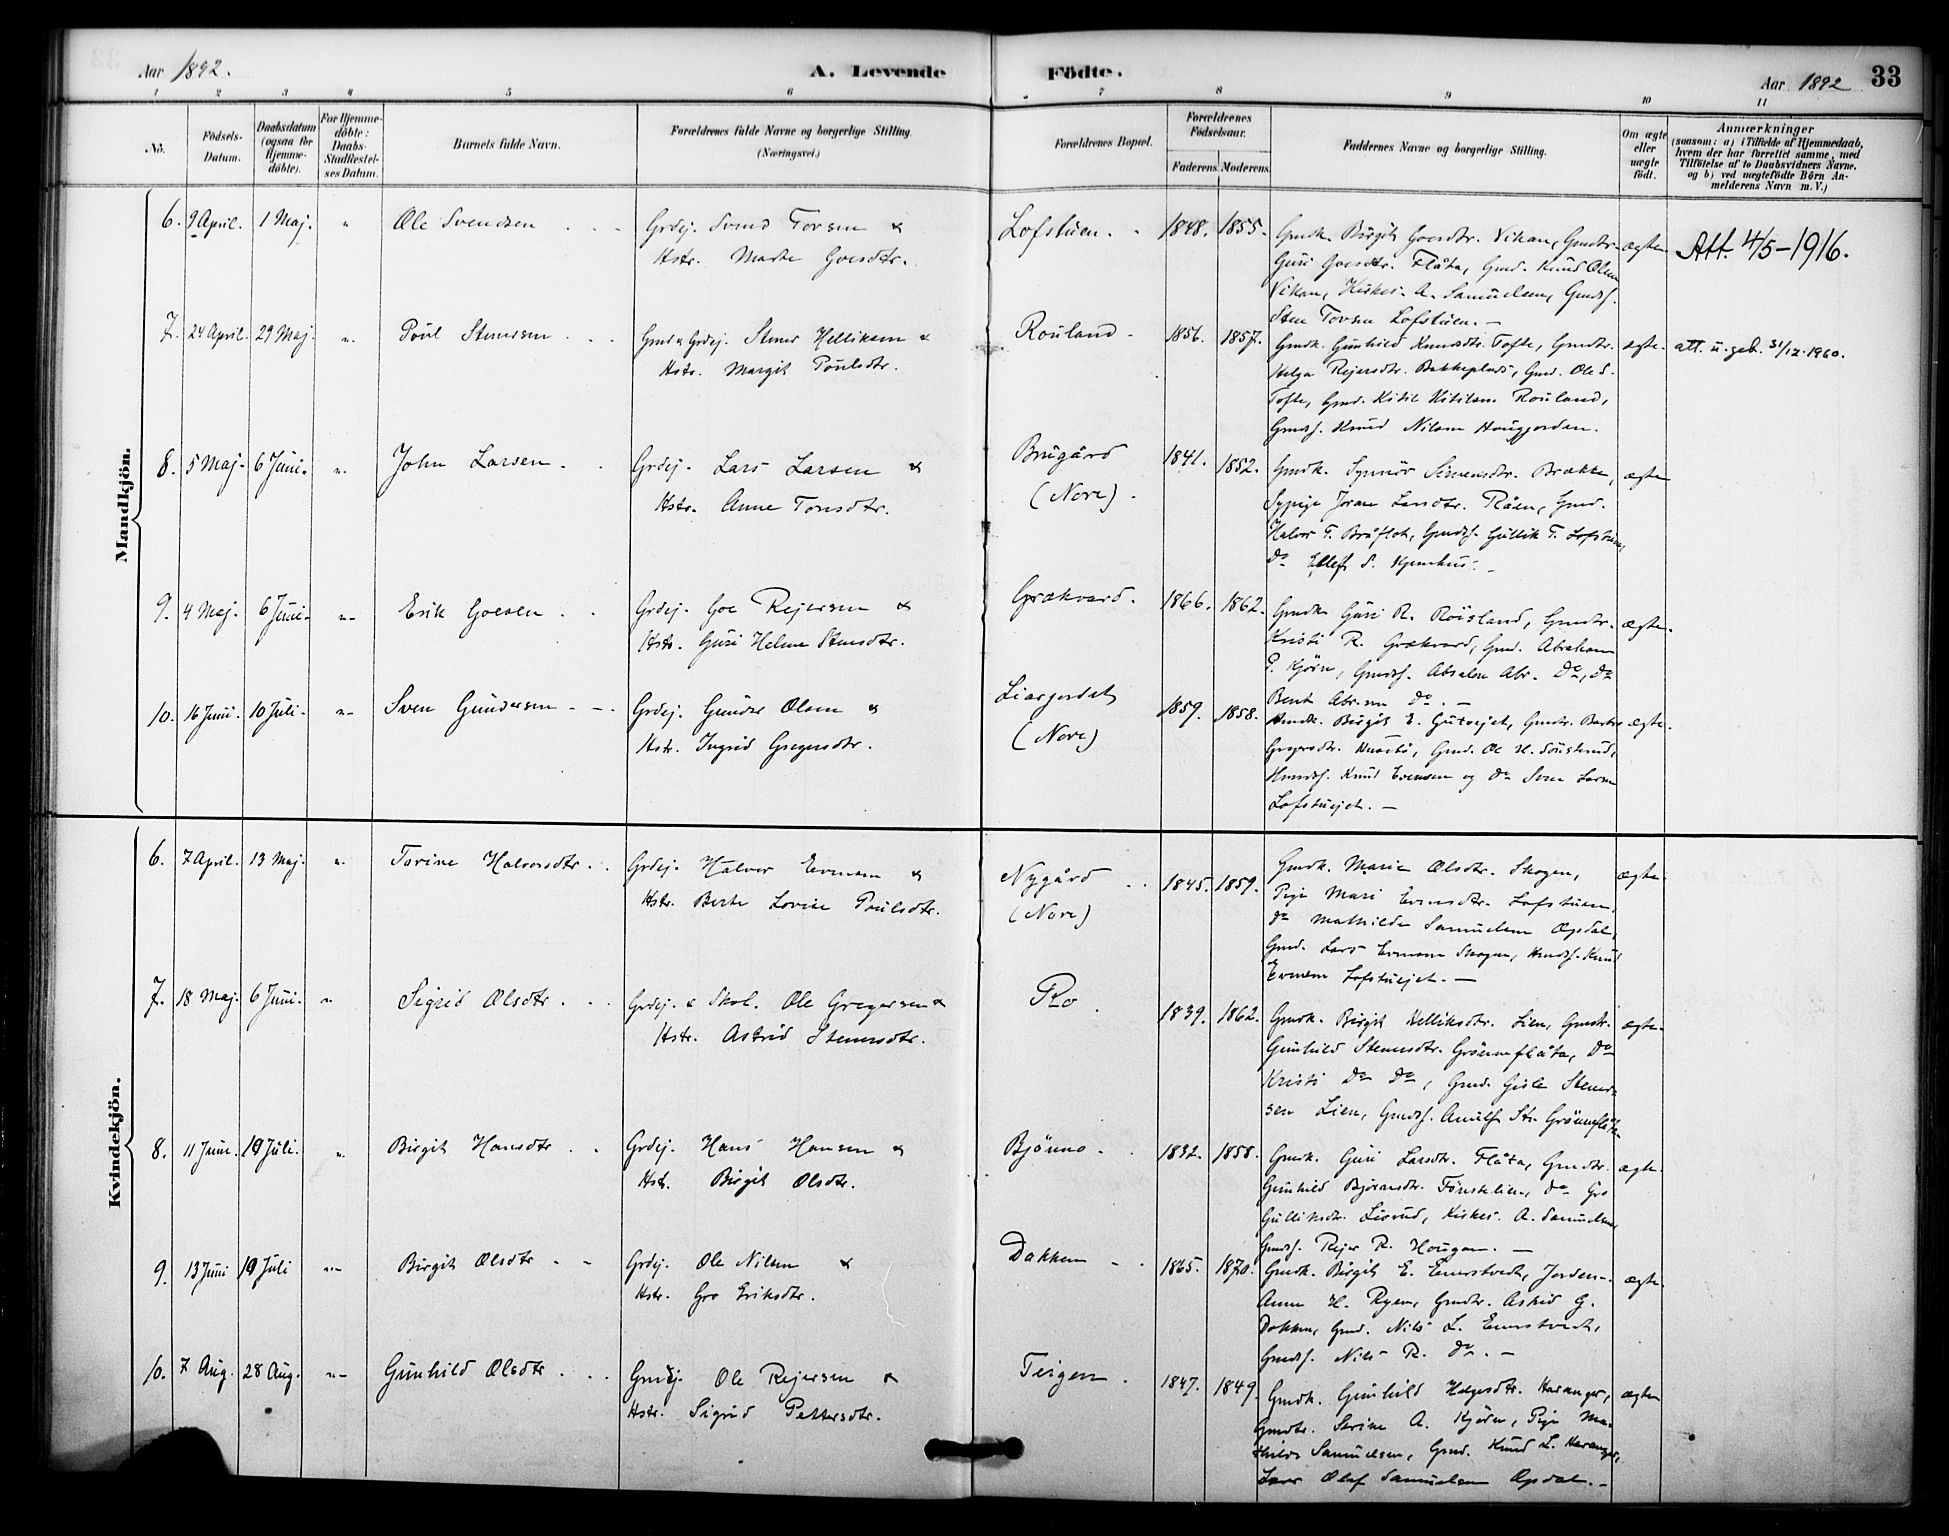 Aar 1892.
A. Levende Födte.
Aar 1892
33
1 2 3 4 5 6 7 8 9 10 11
No.
Födsels-Datum.
Daabsdatum (ogsaa for Hjemmedöbte).
For Hjemmedöbte: Daabs-Stadfæstelses Datum.
Barnets fulde Navn.
Forældrenes fulde Navne og borgerlige Stilling. (Næringsvei.)
Forældrenes Bopæl.
Forældrenes Födselsaar.
Faderens. Moderens.
Faddernes Navne og borgerlige Stilling.
Om ægte eller uægte födt.
Anmærkninger
(saasom: a) i Tilfælde af Hjemmedaab, hvem der har forrettet samme, med Tilföielse af to Daabsvidners Navne. og b) ved uægtefödte Börn Anmelderens Navn m. V.)
Mandkjön.
6. 9 April. 1 Maj. " Ole Svendsen Grdej. Svend Torsen &
Hstr. Marte Goesdtr.
Lofstuen. 1848. 1855.
Gmdk. Birgit Goesdtr. Vikan, Gmdtr.
Guri Goesdtr. Flåta, Gmd. Knud Olsen
Vikan, Kirkes. A. Samuelsen, Gmds.
Sten Torsen Lofstuen. —
ægte Att. 4/5-1916.
7. 24 April. 29 Maj. " Poul Stenersen Gmd & Grdej. Stener Helliksen &
Hstr. Margit Poulsdtr.
Rouland 1856. 1857.
Gmdk. Gunhild Knudsdtr. Tofte, Gmdtr.
Helga Rejersdtr. Bakkeplads, Gmd. Ole S.
Tofte, Gmd. Kitil Kitilsen Rouland,
Gmds. Knud Nilsen Hougjorden.
ægte. att. u. geb. 31/12-1960.
8. 5 Maj. 6 Juni. " John Larsen Grdej. Lars Larsen &
Hstr. Anne Torsdtr.
Brugård (Nore). 1841. 1852.
Gmdk. Synnör Simensdtr. Brække,
Sypige Joran Larsdtr. Råen, Gmd.
Halvor T. Bråflot, Gmds. Gullik T. Lofstuen,
Do Ellef S.
ægte
9. 4 Maj. 6 Juni. " Erik Goesen Grdej. Goe Rejersen &
Hstr. Guri Helene Stensdtr.
Grækvard. 1866. 1862.
Gmdk. Guri R. Röisland, Gmdtr.
Kristi R. Grækvard, Gmd. Abraham
P. Kjörn, Gmds. Absalon Abr. Do, Do
Bent Abr.sen Do. —
ægte.
10. 16 Juni. 10 Juli. " Sven Gundersen Grdej. Gunder Olsen &
Hstr. Ingrid Gregersdtr.
Liasjordet (Nore) 1859. 1858.
Hmdk. Birgit E. Gutvejet, Gmdtr. Barbro
Gregersdtr. Husebö, Gmd. Ole H. Souslerud,
Hmds. Knud Evensen og Do Sven Larsen
Lofthusjet. —
ægte.
Kvindekjön.
6. 7 April. 13 Maj. " Torine Halvorsdtr. Grdej. Halvor Evensen &
Hstr. Berte Lovise Poulsdtr.
Nygård (Nore) 1845. 1859.
Gmdk. Marie Olsdtr. Skogen,
Pige Mari Evensdtr. Lofstuen,
Do Mathilde Samuelsen Opdal,
Gmd. Lars Evensen Skogen, Hmds. Knud
Evensen Lofthusjet. —
ægte
7. 18 Maj. 6 Juni. " Sigrid Olsdtr. Grdej. & Skol. Ole Gregersen &
Hstr. Astrid Stenersdtr.
Ro. 1839. 1862.
Gmdk. Birgit Helliksdtr. Lien, Gmdtr.
Gunhild Stenersdtr. Grönneflåta, Do
Kristi Do Do, Gmd. Gisle Steners-
sen Lien, Gmds. Anulf Str. Grönneflåta.
ægte.
8. 11 Juni. 10 Juli. " Birgit Hansdtr Grdej. Hans Hansen &
Hstr. Birgit Olsdtr.
Björnno. 1832. 1858.
Gmdk. Guri Larsdtr. Flåta, Gmdtr.
Gunhild Björnsdtr. Fönstelien, Do Gro
Gulliksdtr. Liverud, Kirkes. A. Samuelsen,
Gmds. Rejer R. Hougen. —
ægte
9. 13 Juni 10 Juli " Birgit Olsdtr Grdej. Ole Nilsen &
Hstr. Gro Eriksdtr.
Dokken 1865. 1870.
Gmdk. Birgit E. Enerstvedt, Jordem.
Anne H. Ryen, Gmdtr. Astrid G.
Dokken, Gmd. Nils L. Enerstvedt,
Gmds. Nils R. Do. —
ægte.
10. 7 Aug. 28 Aug. " Gunhild Olsdtr Gmdsj. Ole Rejersen &
Hstr. Sigrid Pettersdtr.
Teigen. 1847. 1849.
Gmdk. Gunhild Helgesdtr. Haranger,
Gmdtr. Serine A. Kjörn, Pige Ma-
thilde Samuelsen, Gmd. Knud L. Haranger,
Lærer Olaf Samuelsen Opdal. —
ægte